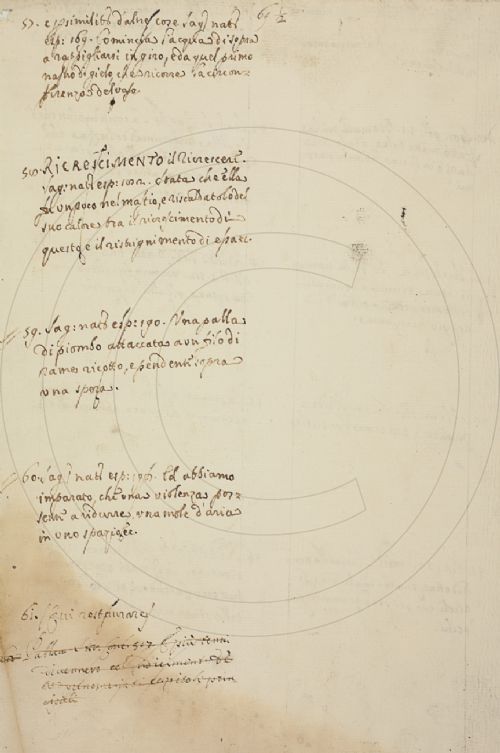 61 ½
57. e più simili d'altre cose Sag: nat:
esp: 169. Comincia l'acqua di sopra
a rappigliarsi in giro, e da quel primo
nastro di gielo, che ricorre la circon-
ferenza del vaso.
58. RICRESCIMENTO il Ricrescere.
Sag: nat: esp: 182. Stata che ella
fu un poco nel matio, e riscaldatolo del
suo calore tra il ricrescimento di
questo e il ristrignimento di
59. Sag: nat: esp: 190. Una palla
di piombo attaccata a un filo di
rame ricotto, e pendente sopra
una spera.
60. Sag: nat: esp: Ed abbiamo
imparato, che una violenza pos-
sente a ridurre una mole d'aria
in uno spazio
61. Segui
divennero